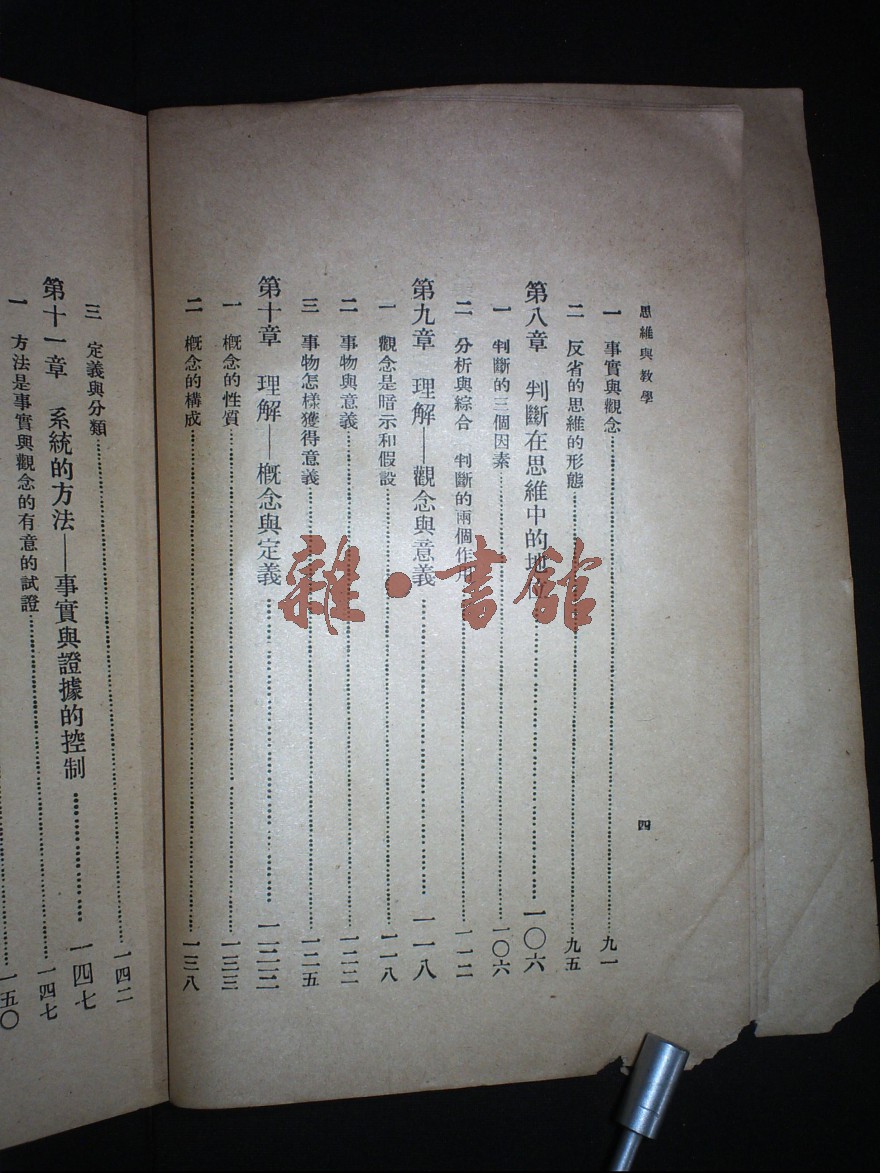 思維與教學
四
一 事實與觀念……九一
二 反省的思維的形態……九五
第八章 判斷在思維中的地位……一〇六
一 判斷的三個因素……一〇六
二 分析與綜合 判斷的兩個作用……一一二
第九章 理解——觀念與意義……一一八
一 觀念是暗示和假設……一一八
二 事物與意義……一二二
三 事物怎樣獲得意義……一二五
第十章 理解——概念與定義……一三三
一 概念的性質……一三三
二 概念的構成……一三八
三 定義與分類……一四二
第十一章 系統的方法——事實與證據的控制……一四七
一 方法是事實與觀念的有意的試證……一四七
一五〇
雜·書館